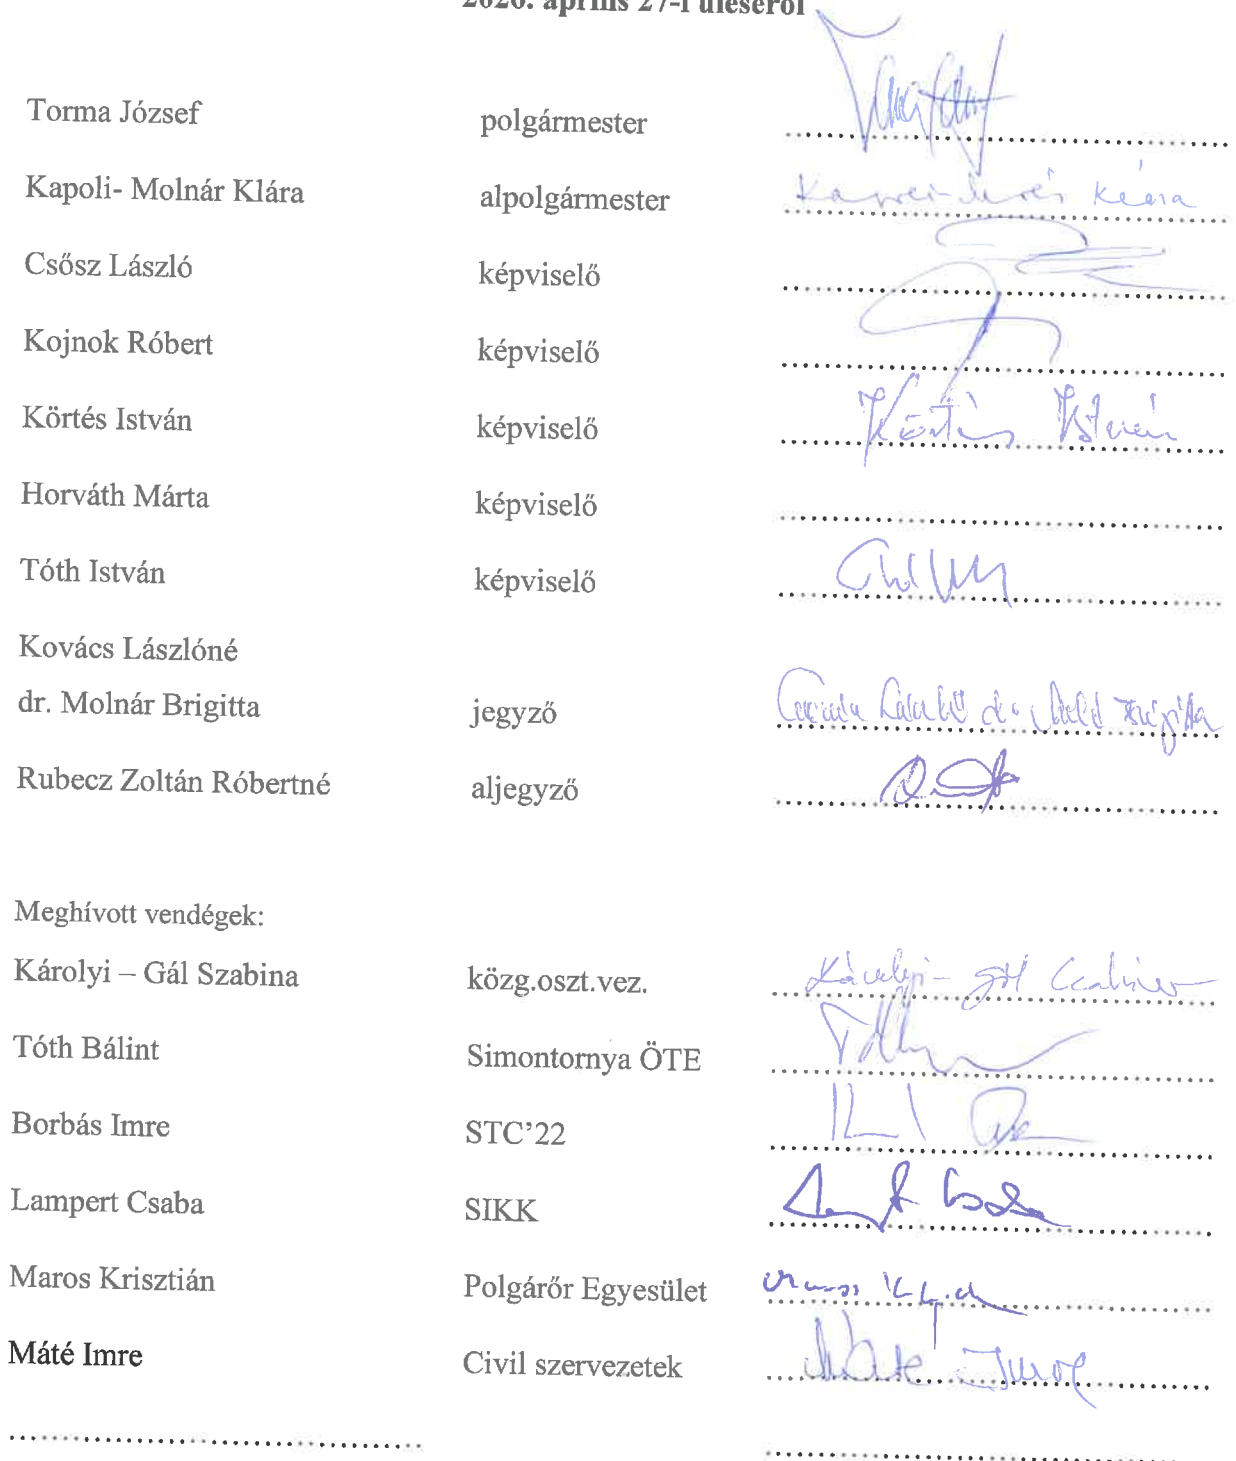 2026. április 27-i üléséről
Torma József polgármester
Kapoli- Molnár Klára alpolgármester Klára
Csősz László képviselő
Kojnok Róbert képviselő
Körtés István képviselő Körtés István
Horváth Márta képviselő
Tóth István képviselő
Kovács Lászlóné
dr. Molnár Brigitta jegyző
Rubecz Zoltán Róbertné aljegyző
Meghívott vendégek:
Károlyi – Gál Szabina közg.oszt.vez. Károlyi - Gál Szabina
Tóth Bálint Simontornya ÖTE
Borbás Imre STC’22
Lampert Csaba SIKK
Maros Krisztián Polgárőr Egyesület
Máté Imre Civil szervezetek Máté Imre